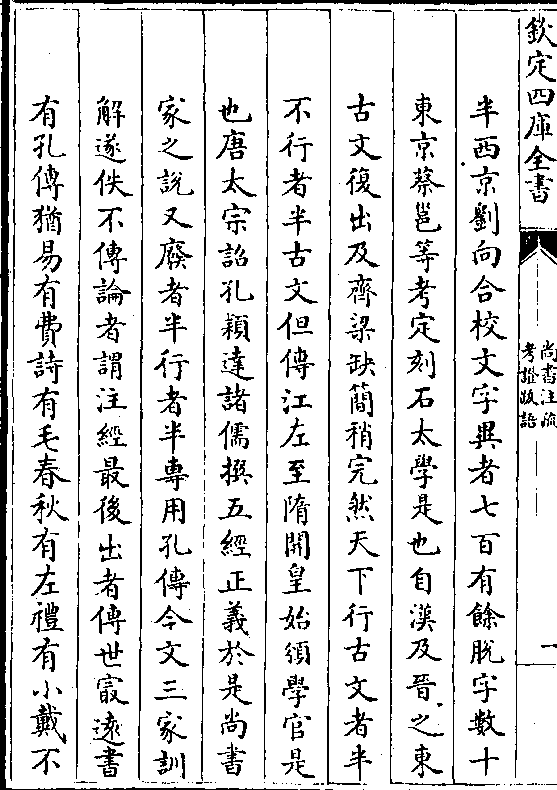 欽定四庫全書
尚書注疏
考證跋語
一
半西京劉向合校文字異者七百有餘脫字數十
東京蔡邕等考定刻石太學是也自漢及晉之東
古文復出及齊梁缺簡稍完然天下行古文者半
不行者半古文但傳江左至隋開皇始頒學官是
也唐太宗詔孔穎達諸儒撰五經正義於是尚書
家之說又廢者半行者半專用孔傳今文三家訓
解遂佚不傳論者謂注經最後出者傳世㝡遠書
有孔傳猶易有費詩有毛春秋有左禮有小戴不